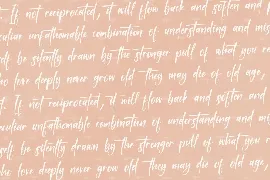 t. If not reciprocated, it will flow back and soften and
culiar unfathomable combination of understanding and mis
self be silently drawn by the stronger pull of what you
ho love deeply never grow old they may die of old age,
t. If not reciprocated, it will flow back and soften and
culiar unfathomable combination of understanding and mis
self be silently drawn by the stronger pull of what you
ho love deeply never grow old they may die of old age,